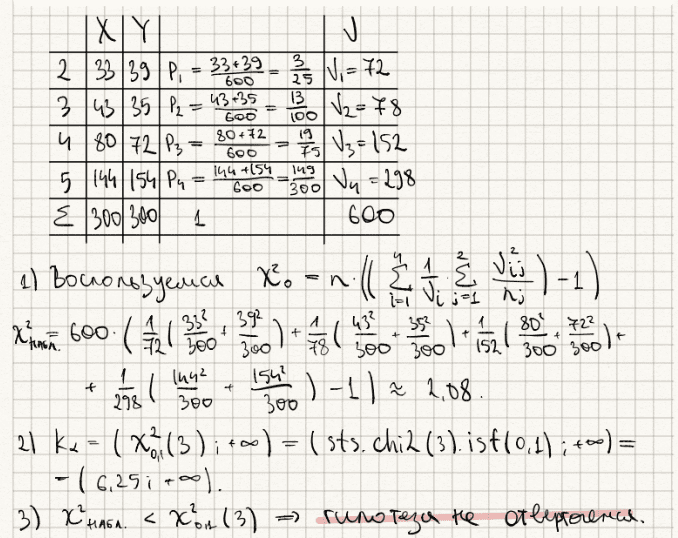 X Y V
2 33 39 P₁ = (33+39)/600 = 3/25 V₁ = 72
3 43 35 P₂ = (43+35)/600 = 13/100 V₂ = 78
4 80 72 P₃ = (80+72)/600 = 19/75 V₃ = 152
5 144 154 P₄ = (144+154)/600 = 149/300 V₄ = 298
Σ 300 300 1 600
1) Воспользуемся X²₀ = n·((∑ᵢ₌₁⁴ 1/Vᵢ · ∑ⱼ₌₁² V²ᵢⱼ/nⱼ) - 1)
X²набл. = 600·(1/72(33²/300 + 39²/300) + 1/78(43²/300 + 35²/300) + 1/152(80²/300 + 72²/300) +
+ 1/298(144²/300 + 154²/300) - 1) ≈ 2,08.
2) K_α = (X²₀,₁(3); +∞) = (sts.chi2(3).isf(0,1); +∞) =
= (6,25; +∞).
3) X²набл. < X²₀,₁(3) ⇒ гипотеза не отвергается.